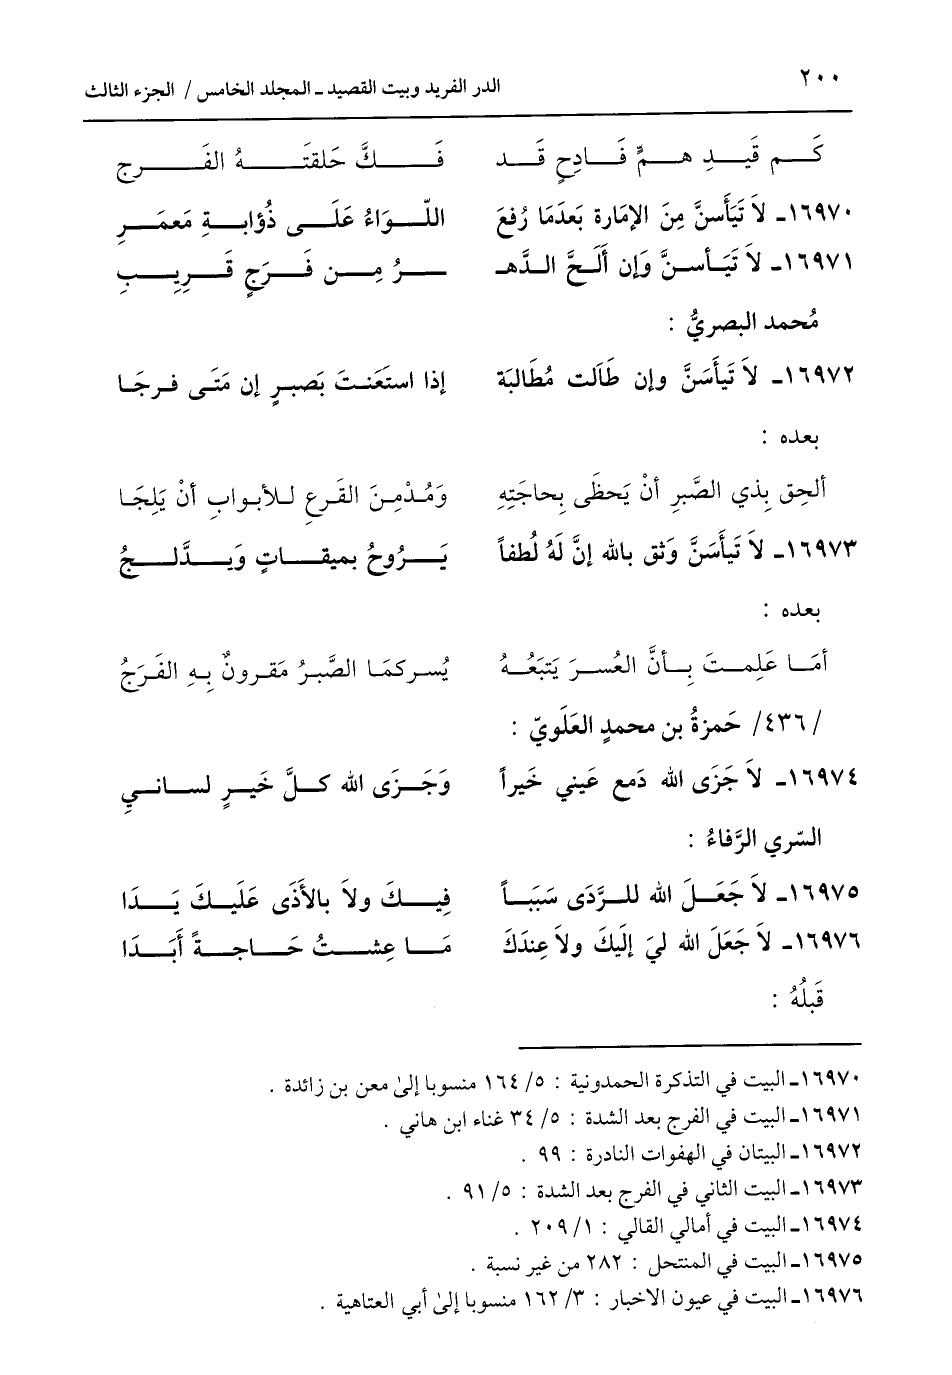 ٢٠٠ الدر الفريد وبيت القصيد ـ المجلد الخامس / الجزء الثالث
كَـم قَيـدِ هـمٍّ فَـادِحٍ قَـد فَـكَّ حَلقتَـهُ الفَـرج
١٦٩٧٠ـ لاَ تَيَأسنَّ مِنَ الإمَارة بَعدَمَا رُفعَ اللّـوَاءُ عَلَـى ذُؤابـةِ مَعمَـرِ
١٦٩٧١ـ لاَ تَيَـأسـنَّ وَإن أَلَـحَّ الـدَّهـ ـرُ مِـن فَـرَجٍ قَـرِيـبِ
مُحمد البصريُّ :
١٦٩٧٢ـ لاَ تَيأَسَنَّ وإن طَالَت مُطَالبَة إذا استَعَنتَ بَصبرٍ إن مَتَى فـرجَا
بعده :
ألحِق بِذي الصَّبرِ أنْ يَحظَى بِحاجَتِهِ وَمُدْمِنَ القَرعِ لـلأبـوابِ أنْ يَلِجَا
١٦٩٧٣ـ لاَ تَيأَسَنَّ وَثق بالله إنَّ لَهُ لُطفاً يَـرُوحُ بميقـاتٍ وَيـدَّلـجُ
بعده :
أمَـا عَلِمـتَ بِـأنَّ العُسـرَ يَتبَعُـهُ يُسـركمَا الصَّبرُ مَقرونٌ بـهِ الفَرَجُ
/٤٣٦/ حَمزةُ بن محمدٍ العَلَويّ :
١٦٩٧٤ـ لاَ جَزَى الله دَمع عَيني خَيراً وَجَـزَى الله كـلَّ خَيـرٍ لسـانـيِ
السّري الرَّفاءُ :
١٦٩٧٥ـ لاَ جَعَـلَ الله للـرَّدَى سَبَبـاً فِيـكَ ولاَ بالأَذَى عَلَيـكَ يَـدَا
١٦٩٧٦ـ لاَ جَعَلَ الله ليَ إلَيكَ ولاَ عِندَكَ مَـا عِشـتُ حَـاجـةً أَبَـدَا
قَبلُهُ :
١٦٩٧٠ـ البيت في التذكرة الحمدونية : ٥/ ١٦٤ منسوبا إلىٰ معن بن زائدة .
١٦٩٧١ـ البيت في الفرج بعد الشدة : ٥/ ٣٤ غناء ابن هاني .
١٦٩٧٢ـ البيتان في الهفوات النادرة : ٩٩ .
١٦٩٧٣ـ البيت الثاني في الفرج بعد الشدة : ٥/ ٩١ .
١٦٩٧٤ـ البيت في أمالي القالي : ١/ ٢٠٩ .
١٦٩٧٥ـ البيت في المنتحل : ٢٨٢ من غير نسبة .
١٦٩٧٦ـ البيت في عيون الاخبار : ٣/ ١٦٢ منسوبا إلىٰ أبي العتاهية .